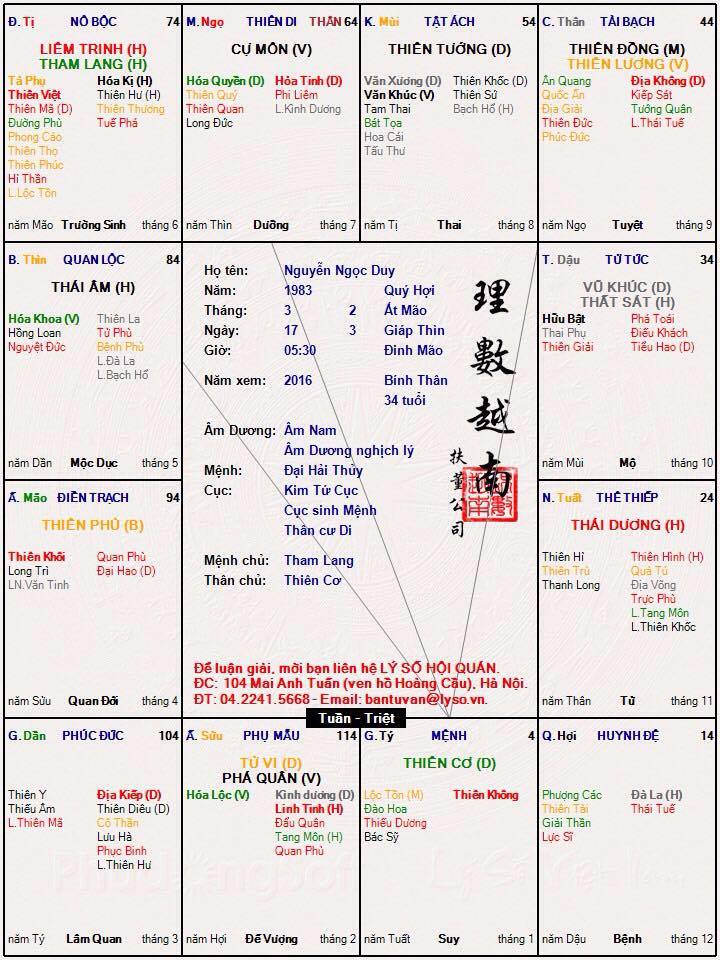 Đ. Tị NÔ BỘC 74
LIÊM TRINH (H)
THAM LANG (H)
Tả Phụ
Thiên Việt
Thiên Mã (D)
Đường Phù
Phong Cáo
Thiên Thọ
Thiên Phúc
Hỉ Thần
L.Lộc Tồn
Hóa Kị (H)
Thiên Hư (H)
Thiên Thương
Tuế Phá
năm Mão Trường Sinh tháng 6
M. Ngọ THIÊN DI THÂN 64
CỰ MÔN (V)
Hóa Quyền (D)
Thiên Quý
Thiên Quan
Long Đức
Hỏa Tinh (D)
Phi Liêm
L.Kình Dương
năm Thìn Dưỡng tháng 7
K. Mùi TẬT ÁCH 54
THIÊN TƯỚNG (D)
Văn Xương (D)
Văn Khúc (V)
Tam Thai
Bát Tọa
Hoa Cái
Tấu Thư
Thiên Khốc (D)
Thiên Sứ
Bạch Hổ (H)
năm Tị Thai tháng 8
C. Thân TÀI BẠCH 44
THIÊN ĐỒNG (M)
THIÊN LƯƠNG (V)
Ân Quang
Quốc Ấn
Địa Giải
Thiên Đức
Phúc Đức
Địa Không (D)
Kiếp Sát
Tướng Quân
L.Thái Tuế
năm Ngọ Tuyệt tháng 9
B. Thìn QUAN LỘC 84
THÁI ÂM (H)
Hóa Khoa (V)
Hồng Loan
Nguyệt Đức
Thiên La
Tử Phù
Bệnh Phù
L.Đà La
L.Bạch Hổ
năm Dần Mộc Dục tháng 5
Họ tên: Nguyễn Ngọc Duy
Năm: 1983 Quý Hợi
Tháng: 3 2 Ất Mão
Ngày: 17 3 Giáp Thìn
Giờ: 05:30 Đinh Mão
Năm xem: 2016 Bính Thân
34 tuổi
Âm Dương: Âm Nam
Âm Dương nghịch lý
Mệnh: Đại Hải Thủy
Cục: Kim Tứ Cục
Cục sinh Mệnh
Thân cư Di
Mệnh chủ: Tham Lang
Thân chủ: Thiên Cơ
理數越南
扶董公司
Để luận giải, mời bạn liên hệ LÝ SỐ HỘI QUÁN.
ĐC: 104 Mai Anh Tuấn (ven hồ Hoàng Cầu), Hà Nội.
ĐT: 04.2241.5668 - Email: bantuvan@lyso.vn.
Tuần - Triệt
T. Dậu TỬ TỨC 34
VŨ KHÚC (D)
THẤT SÁT (H)
Hữu Bật
Thai Phụ
Thiên Giải
Phá Toái
Điếu Khách
Tiểu Hao (D)
năm Mùi Mộ tháng 10
Ấ. Mão ĐIỀN TRẠCH 94
THIÊN PHỦ (B)
Thiên Khôi
Long Trì
LN.Văn Tinh
Quan Phù
Đại Hao (D)
năm Sửu Quan Đới tháng 4
N. Tuất THÊ THIẾP 24
THÁI DƯƠNG (H)
Thiên Hỉ
Thiên Trù
Thanh Long
Thiên Hình (H)
Quả Tú
Địa Võng
Trực Phù
L.Tang Môn
L.Thiên Khốc
năm Thân Tử tháng 11
G. Dần PHÚC ĐỨC 104
Thiên Y
Thiếu Âm
L.Thiên Mã
Địa Kiếp (D)
Thiên Diêu (D)
Cô Thần
Lưu Hà
Phục Binh
L.Thiên Hư
năm Tý Lâm Quan tháng 3
Ấ. Sửu PHỤ MẪU 114
TỬ VI (D)
PHÁ QUÂN (V)
Hóa Lộc (V)
Kình dương (D)
Linh Tinh (H)
Đẩu Quân
Tang Môn (H)
Quan Phủ
năm Hợi Đế Vượng tháng 2
G. Tý MỆNH 4
THIÊN CƠ (D)
Lộc Tồn (M)
Đào Hoa
Thiếu Dương
Bác Sỹ
Thiên Không
năm Tuất Suy tháng 1
Q. Hợi HUYNH ĐỆ 14
Phượng Các
Thiên Tài
Giải Thần
Lực Sĩ
Đà La (H)
Thái Tuế
năm Dậu Bệnh tháng 12